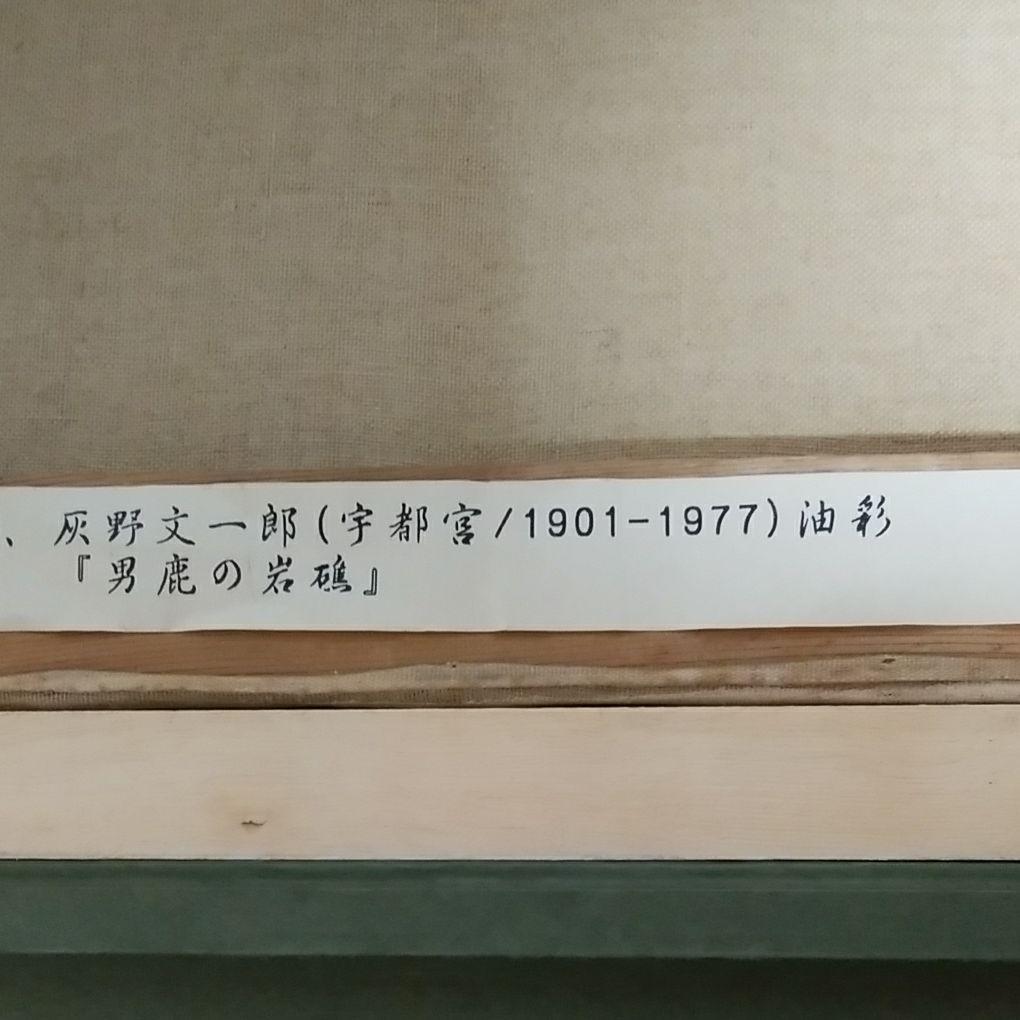 、灰野文一郎(宇都宮/1901-1977)油彩
『男鹿の岩礁』